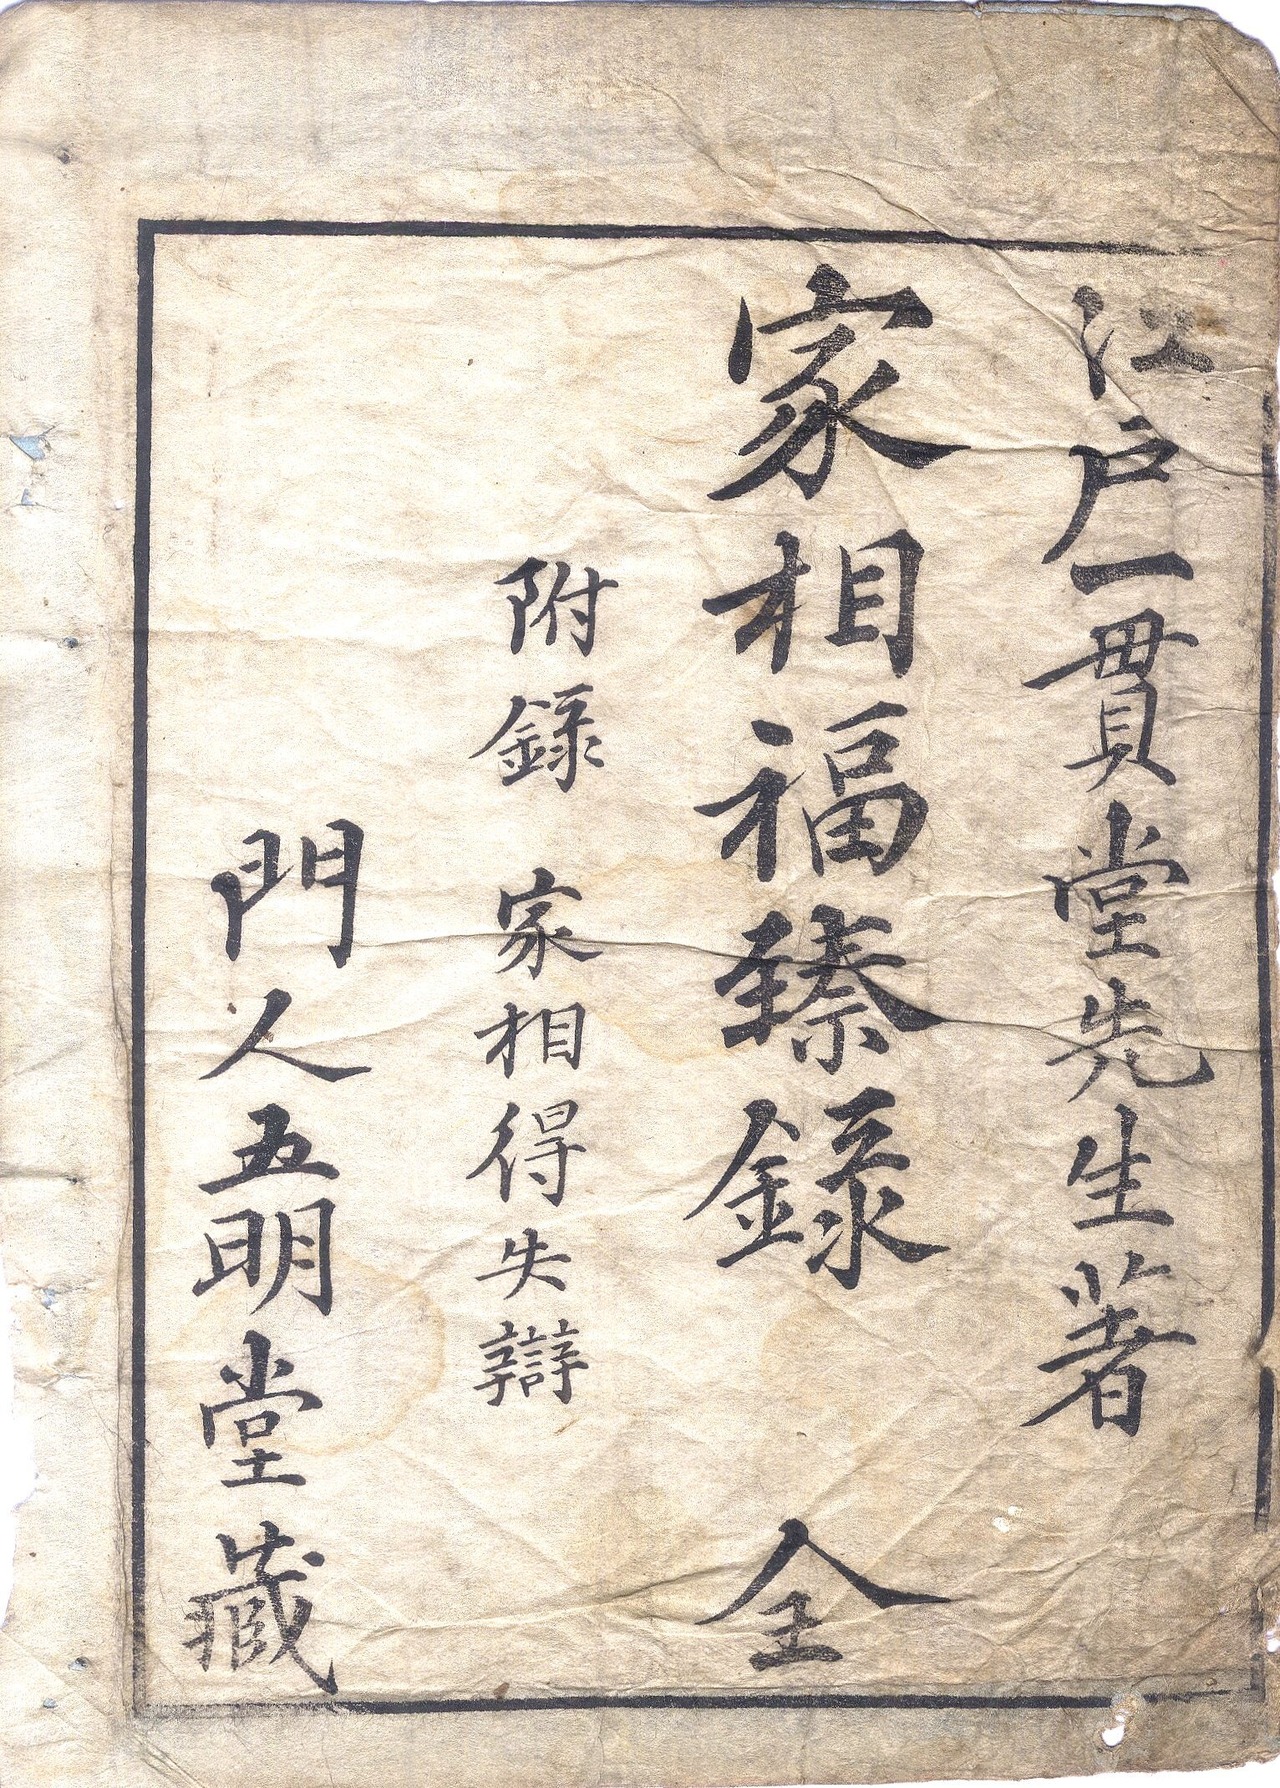 江戸一貫堂先生著
家相福臻録 全
附録 家相得失辯
門人五明堂藏